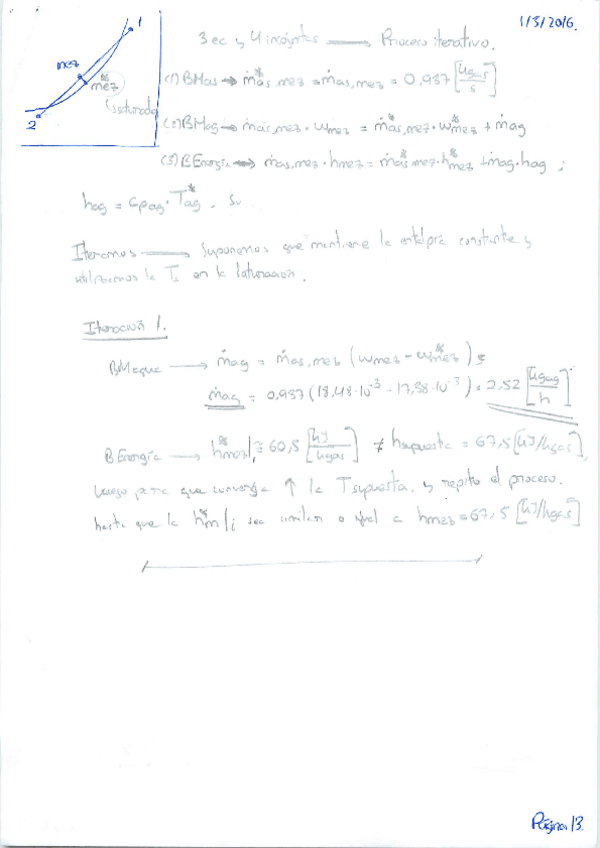 1/3/2016.
3 ec y 4 incógnitas → Proceso iterativo.
1
mez
mez*
2
(1) BMas → ṁas,mez* = ṁas,mez = 0,937 [kgas/s]
(2) BMag → ṁas,mez · ωmez = ṁas,mez* · ωmez* + ṁag
(3) BEnergía → ṁas,mez · hmez = ṁas,mez* · hmez* + ṁag · hag ;
hag = Cpag · Tag* .
Iteramos → Suponemos que mantiene la entalpía constante y
utilizamos la Ts en la saturación.
Iteración 1.
BMagua → ṁag = ṁas,mez (ωmez - ωmez*) =
ṁag = 0,937 (18,48·10⁻³ - 17,38·10⁻³) = 2,52 [kgag/h]
BEnergía → hmez*|₁ ≅ 60,5 [kJ/kgas] ≠ hsupuesta = 67,5 [kJ/kgas],
luego para que converja ↑ la Tsupuesta, y repito el proceso.
hasta que la hm*|i sea similar o igual a hmez = 67,5 [kJ/kgas]
Página 13.